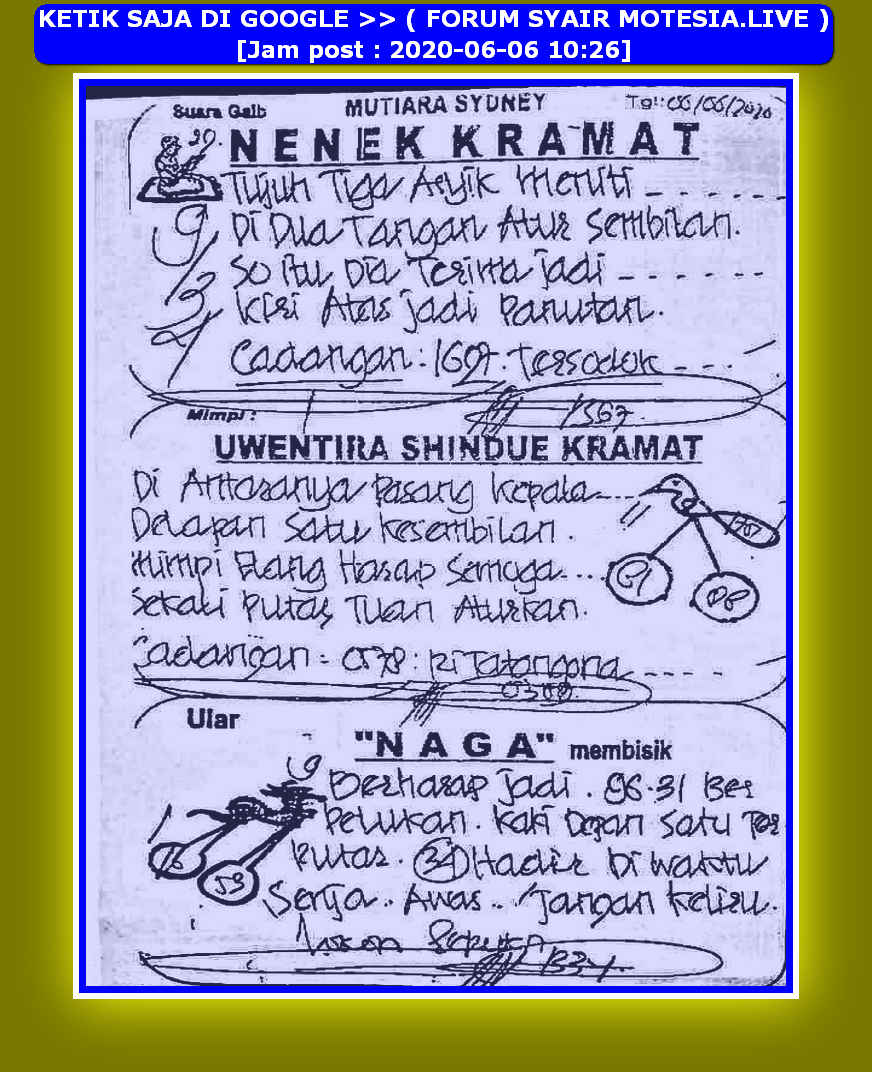 KETIK SAJA DI GOOGLE >> ( FORUM SYAIR MOTESIA.LIVE )
[Jam post : 2020-06-06 10:26]
Suara Gaib MUTIARA SYDNEY Tgl: 06/06/2020
NENEK KRAMAT
Tujuh Tiga Asyik Meniti
Di Dua Tangan Atur Sembilan.
So itu Dia Terima jadi
Kiri Atas jadi Panutan.
Cadangan: Tersodok
Mimpi :
UWENTIRA SHINDUE KRAMAT
Di Antaranya Pasang Kepala
Delapan Satu Kesembilan.
Mimpi Elang Harap Semoga
Sekali Putar Tuan Aturkan.
Cadangan =
Ular
"NAGA" membisik
Berharap jadi. 96.31 Ber
Pelukan. Kaki Depan Satu Ter
Putar. 34 Hadir Di Waktu
Senja.. Awas.. Jangan Keliru.